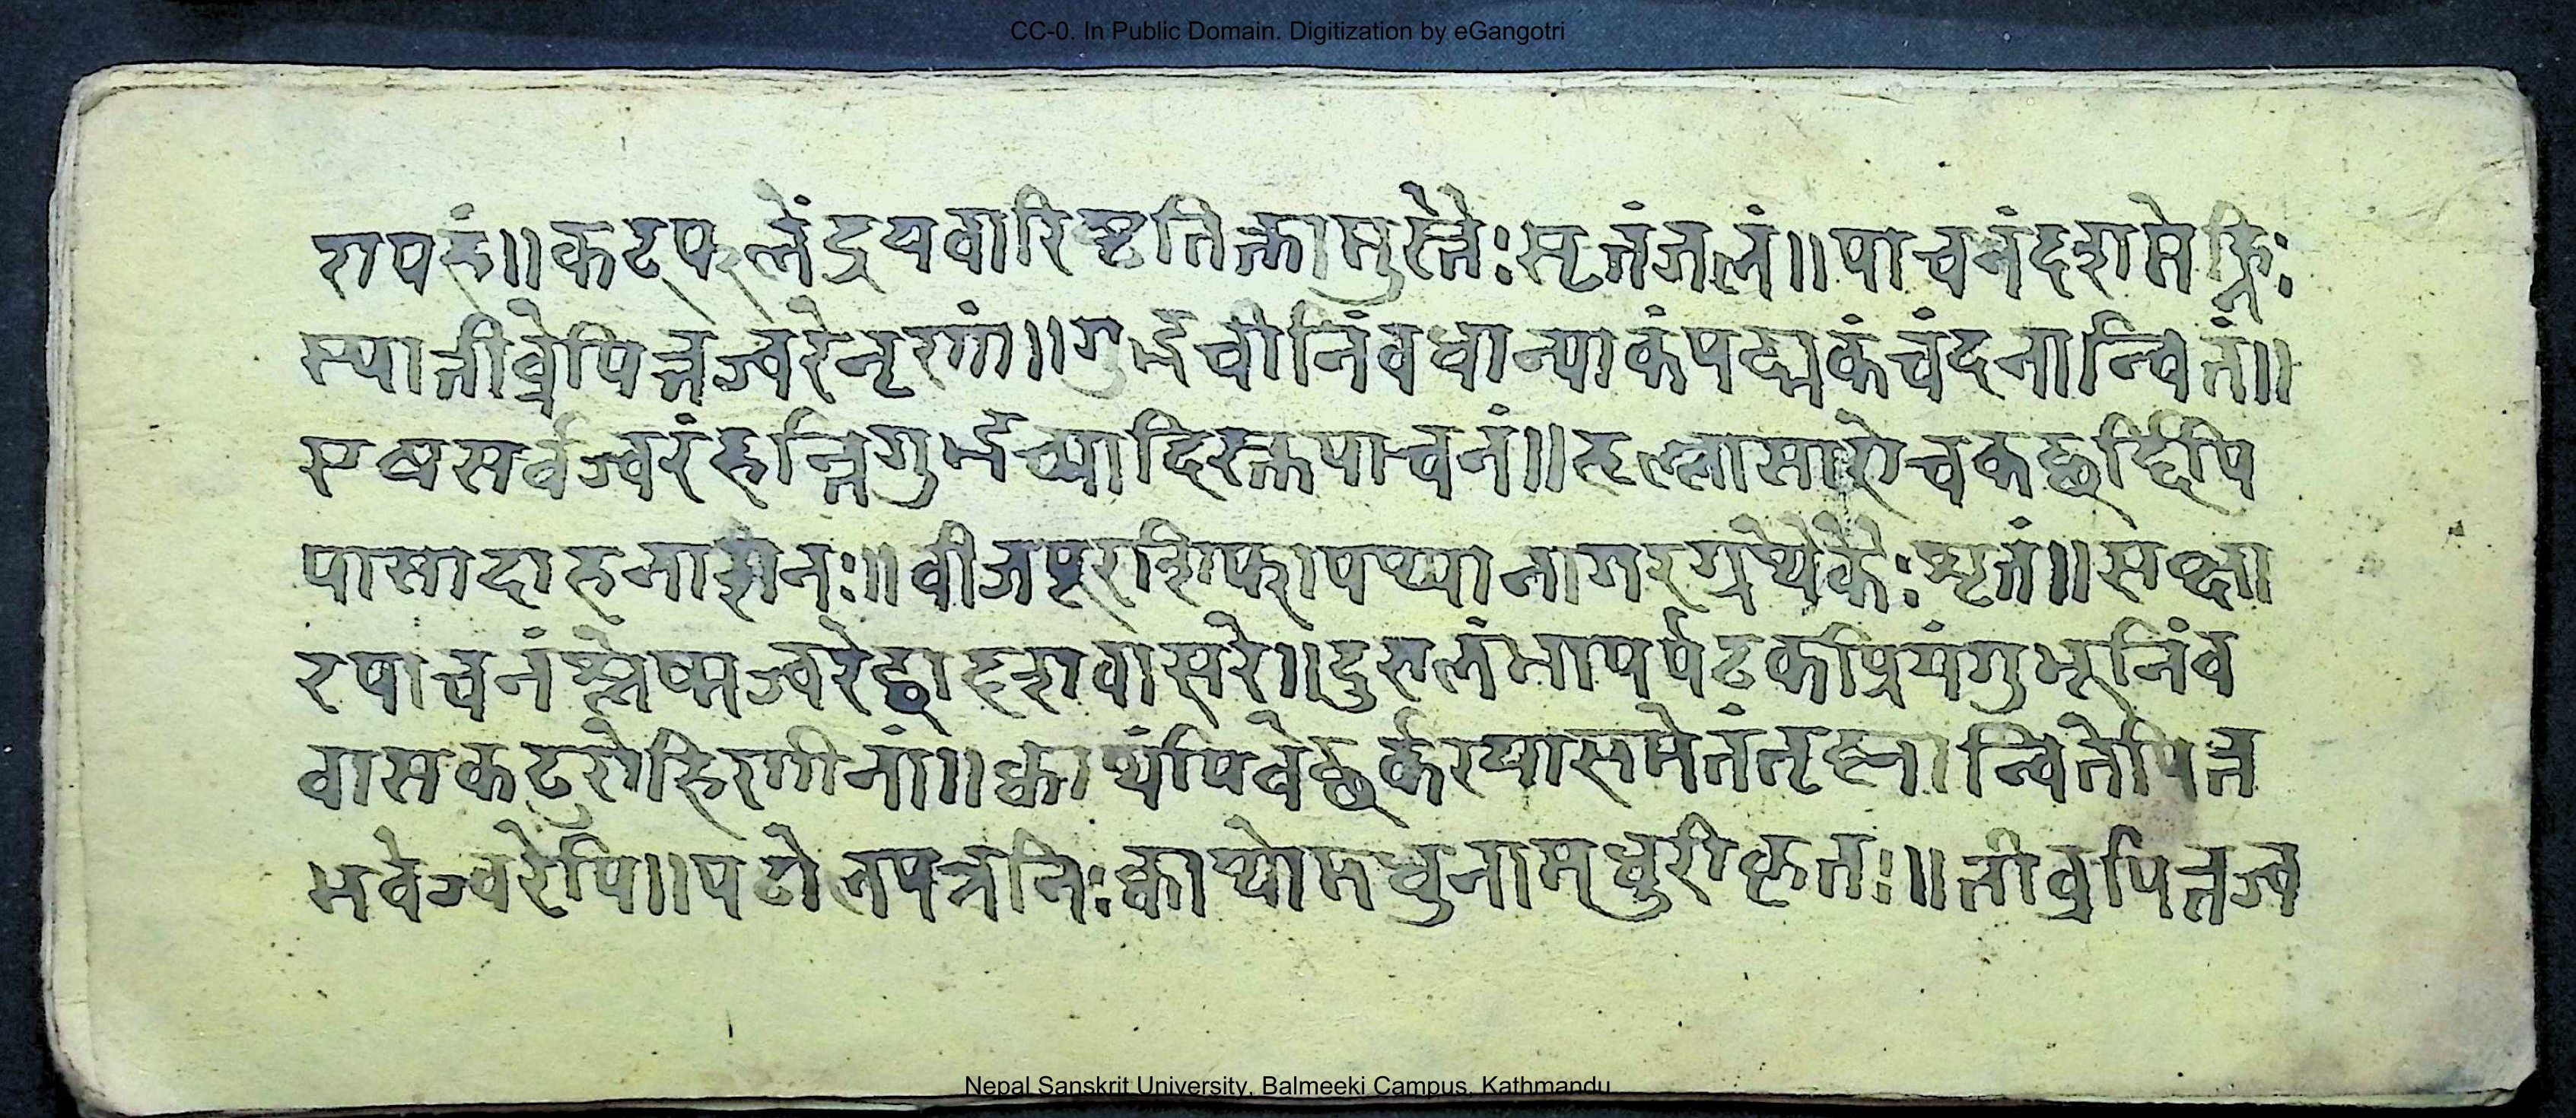 CC-0. In Public Domain. Digitization by eGangotri
रापहं॥कट्फलेंद्रयवारिष्टतिक्तामुस्तैः सृतंजलं॥पाचनंदशमेह्निः
स्यात्तीव्रेपित्तज्वरेनृणां॥गुर्डूचीनिंवधान्याकंपद्मकंचंदनान्वितं॥
एषसर्वज्वरंहन्तिगुर्डूच्यादिस्तुपाचनं॥हृल्लासारोचकछर्द्दिपि
पासादाहनाशनः॥वीजपूरशिफापथ्यानागरग्रंथिकैः शृतं॥सक्षा
रपाचनंश्लेष्मज्वरेद्वादशवासरे॥दुरालंभापर्पटकप्रियंगुभूनिंव
वासकटुरोहिणीनां॥क्वाथंपिवेछर्करयासमेतंतृष्नान्वितेपित्त
भवेज्वरेपि॥पटोलपत्रनिःक्वाथोमधुनामधुरीकृतः॥तीव्रपित्तज्व
Nepal Sanskrit University, Balmeeki Campus, Kathmandu